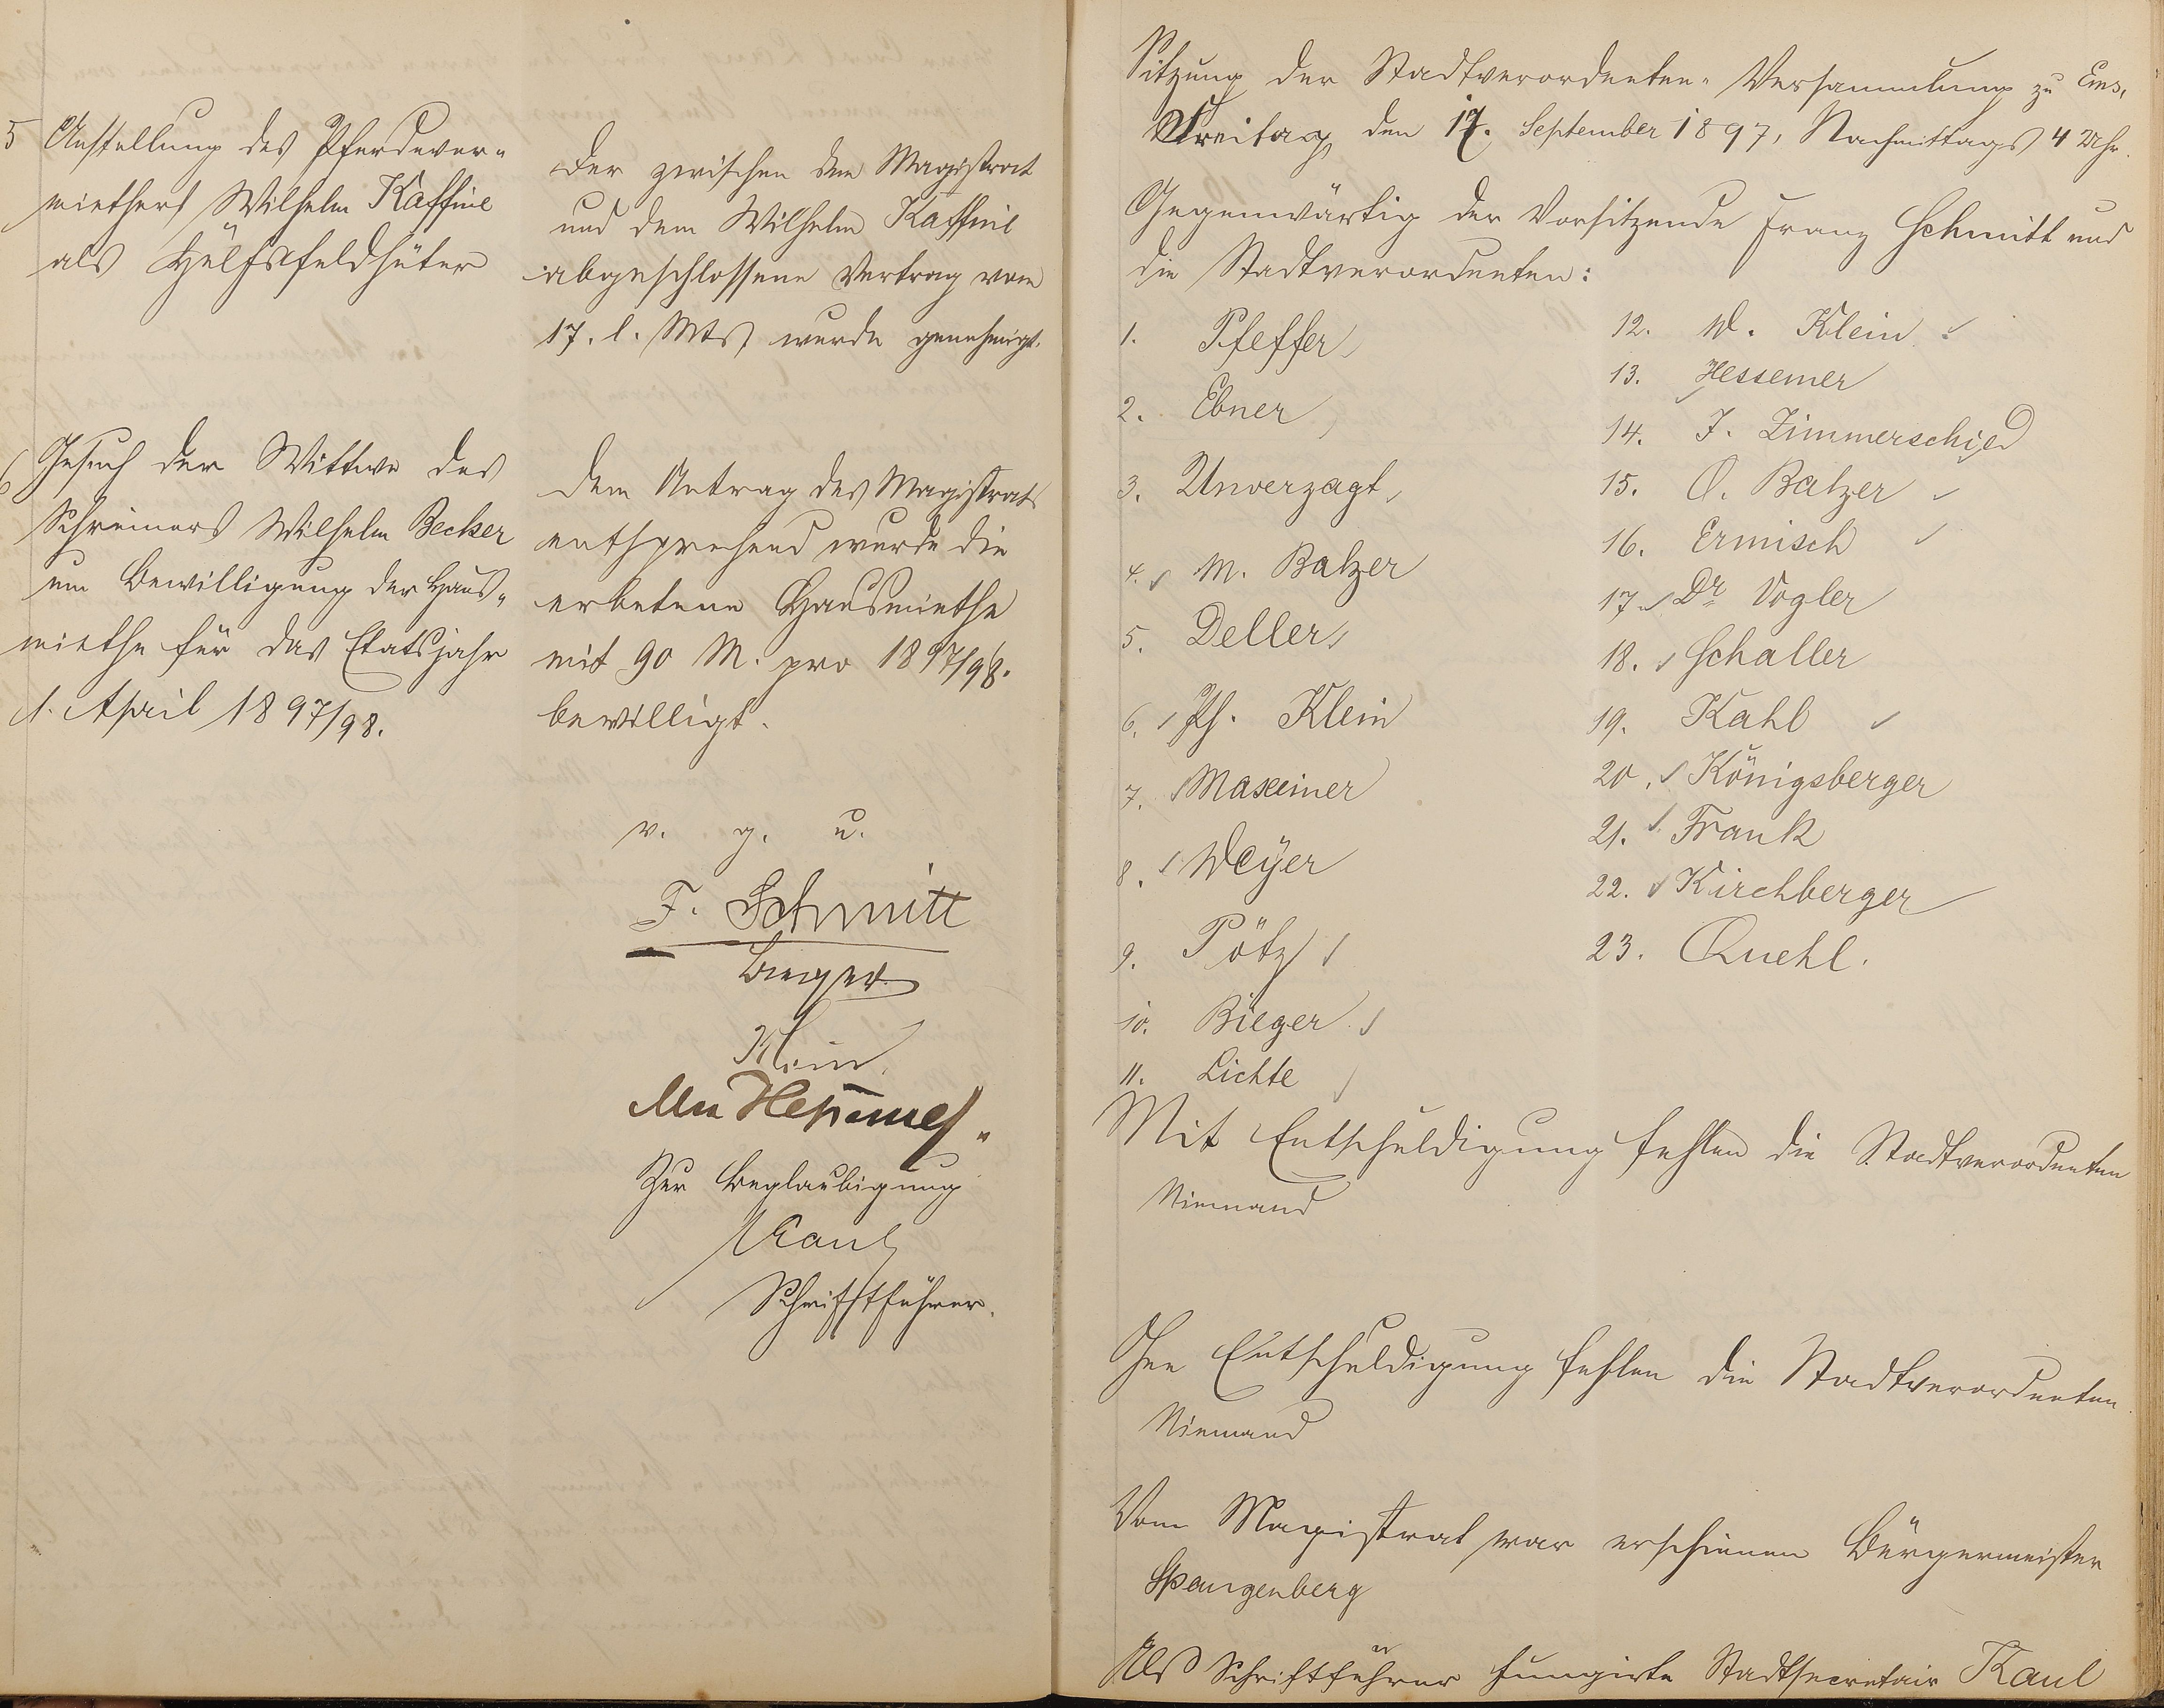 5 Anstellung des Pferdever-
miethers Wilhelm Kaffine
als Hülfsfeldhüter
Der zwischen dem Magistrat
und dem Wilhelm Kaffine
abgeschlossene Vertrag vom
17. l. Mts wurde genehmigt.
6 Gesuch der Wittwe des
Schreiners Wilhelm Becker
um Bewilligung der Haus-
miethe für das Etatsjahr
1. April 1897/98.
Dem Antrag des Magistrats
entsprechend wurde die
erbetene Hausmiethe
mit 90 M. pro 1897/98.
bewilligt.
v. g. u.
F. Schmitt
Bieger
Klein
Hessemer
Zur Beglaubigung
Kaul
Schriftführer.
Sitzung der Stadtverordneten-Versammlung zu Ems,
Freitag, den 17. September 1897, Nachmittags 4 Uhr.
Gegenwärtig der Vorsitzende Franz Schmitt und
die Stadtverordneten:
1. Pfeffer
2. Ebner
3. Unverzagt
4. M. Balzer
5. Deller
6. Ph. Klein
7. Maxeiner
8. Weyer
9. Pötz
10. Bieger
11. Lichte
12. W. Klein
13. Hessemer
14. J. Zimmerschied
15. O. Balzer
16. Ermisch
17. Dr Vogler
18. Schaller
19. Kahl
20. Königsberger
21. Frank
22. Kirchberger
23. Quehl.
Mit Entschuldigung fehlen die Stadtverordneten
Niemand
Ohne Entschuldigung fehlen die Stadtverordneten
Niemand
Vom Magistrat war erschienen Bürgermeister
Spangenberg
Als Schriftführer fungirte Stadtsecretair Kaul